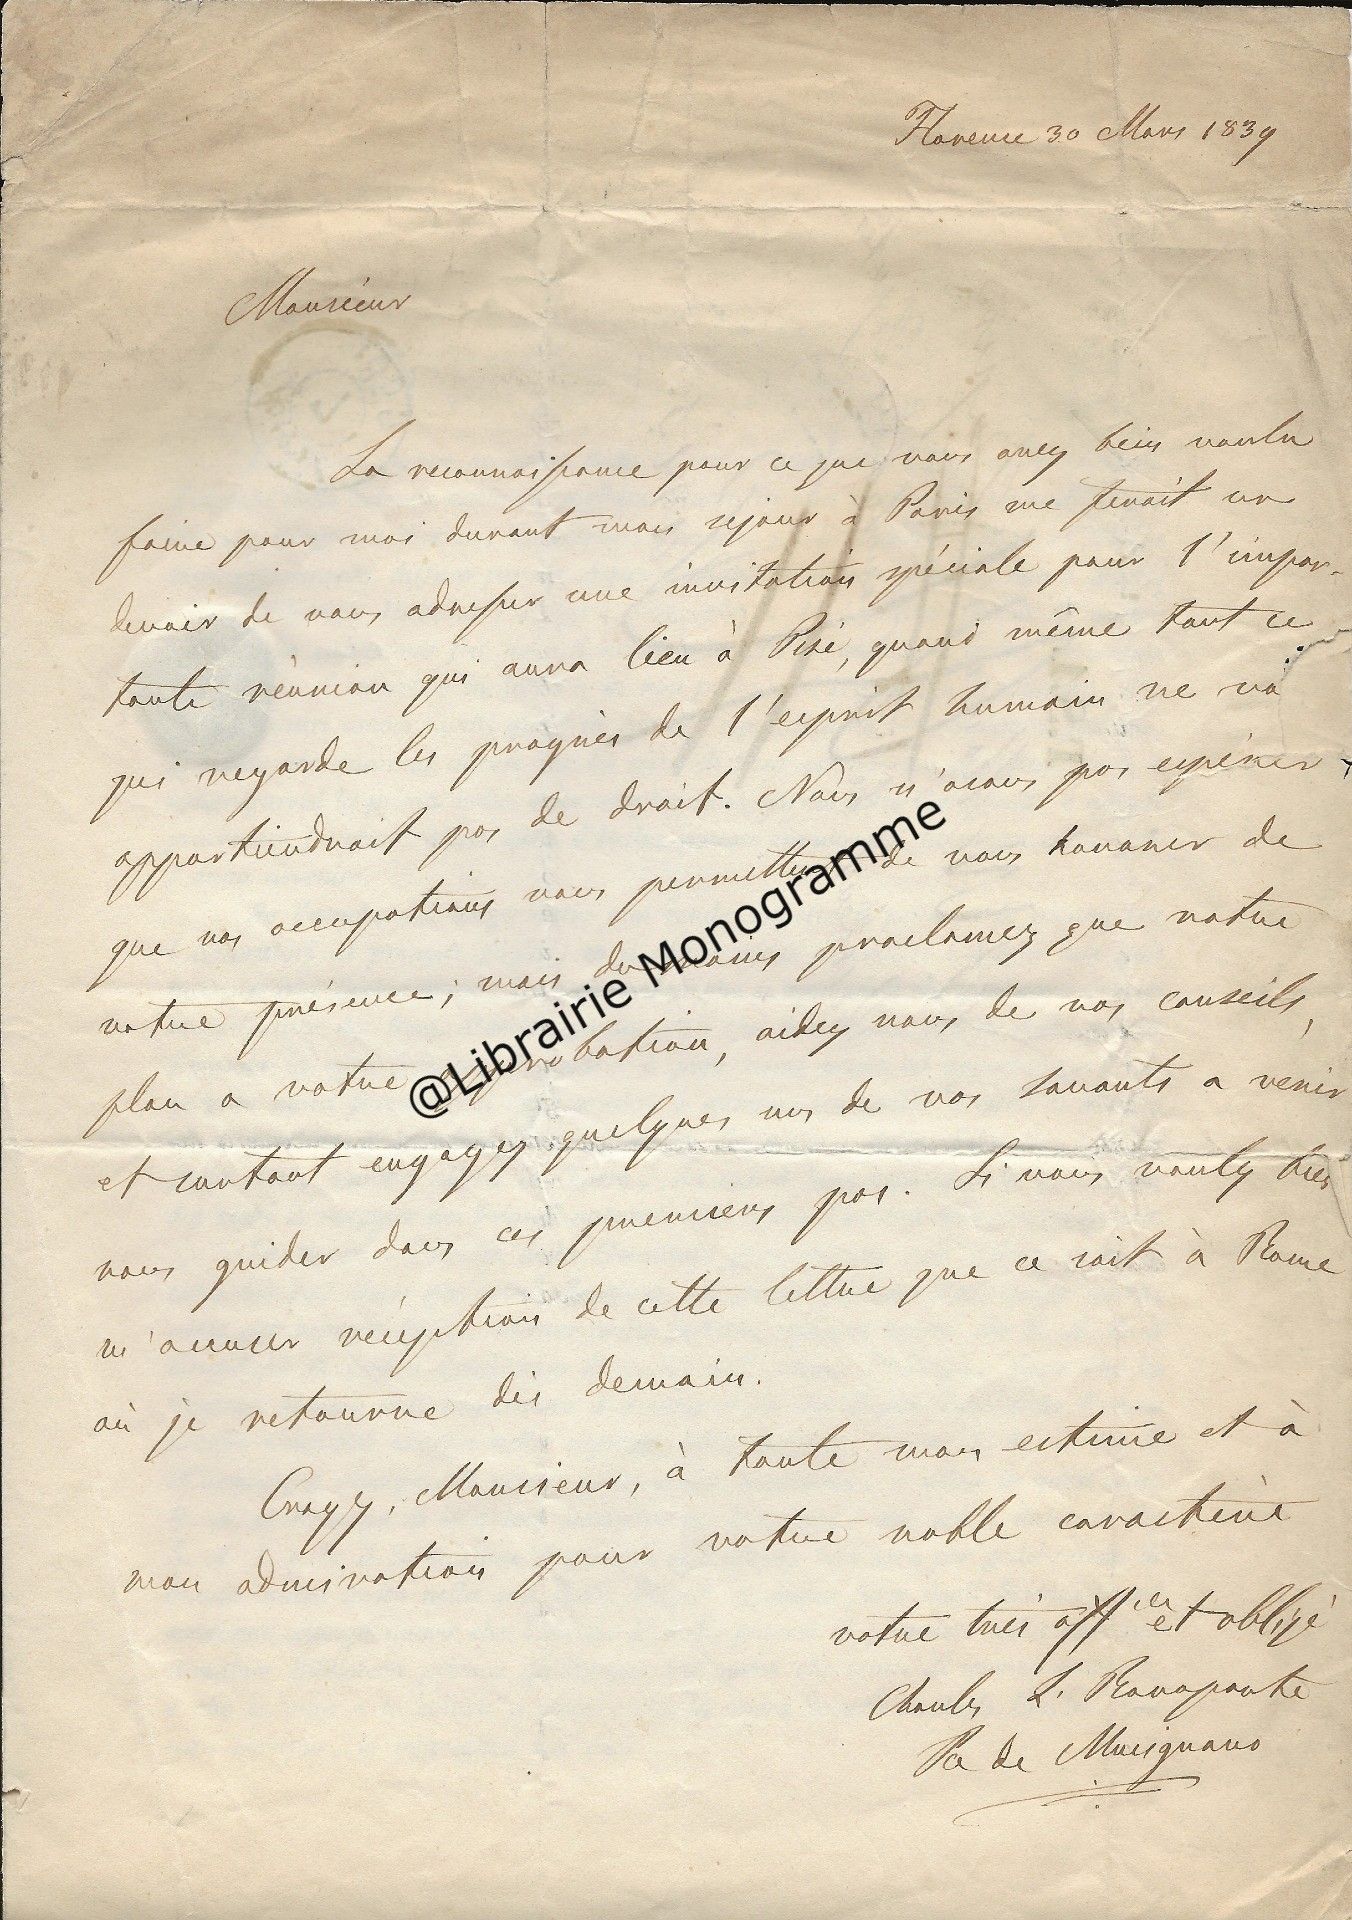 Florence 30 Mars 1839
Monsieur
La reconnaissance pour ce que vous avez bien voulu
faire pour moi durant mon sejour à Paris me feroit un
devoir de vous adresser une invitation spéciale pour l'impor-
tante réunion qui aura lieu à Pise, quand même tout ce
qui regarde les progrès de l'esprit humain ne vous
appartiendrait pas de droit. Nous n'osons pas espérer
que vos occupations vous permettent de nous honorer de
votre présence; mais du moins proclamez que notre
plan a votre approbation, aidez nous de vos conseils,
et surtout engagez quelques uns de vos savants a venir
nous guider dans ces premiers pas. Si vous voulez bien
m'accuser réception de cette lettre que ce soit à Rome
où je retourne dès demain.
Croyez, Monsieur, à toute mon estime et à
mon admiration pour votre noble caractère
votre très aff et obligé
Charles L. Bonaparte
Pce de Musignano
@Librairie Monogramme